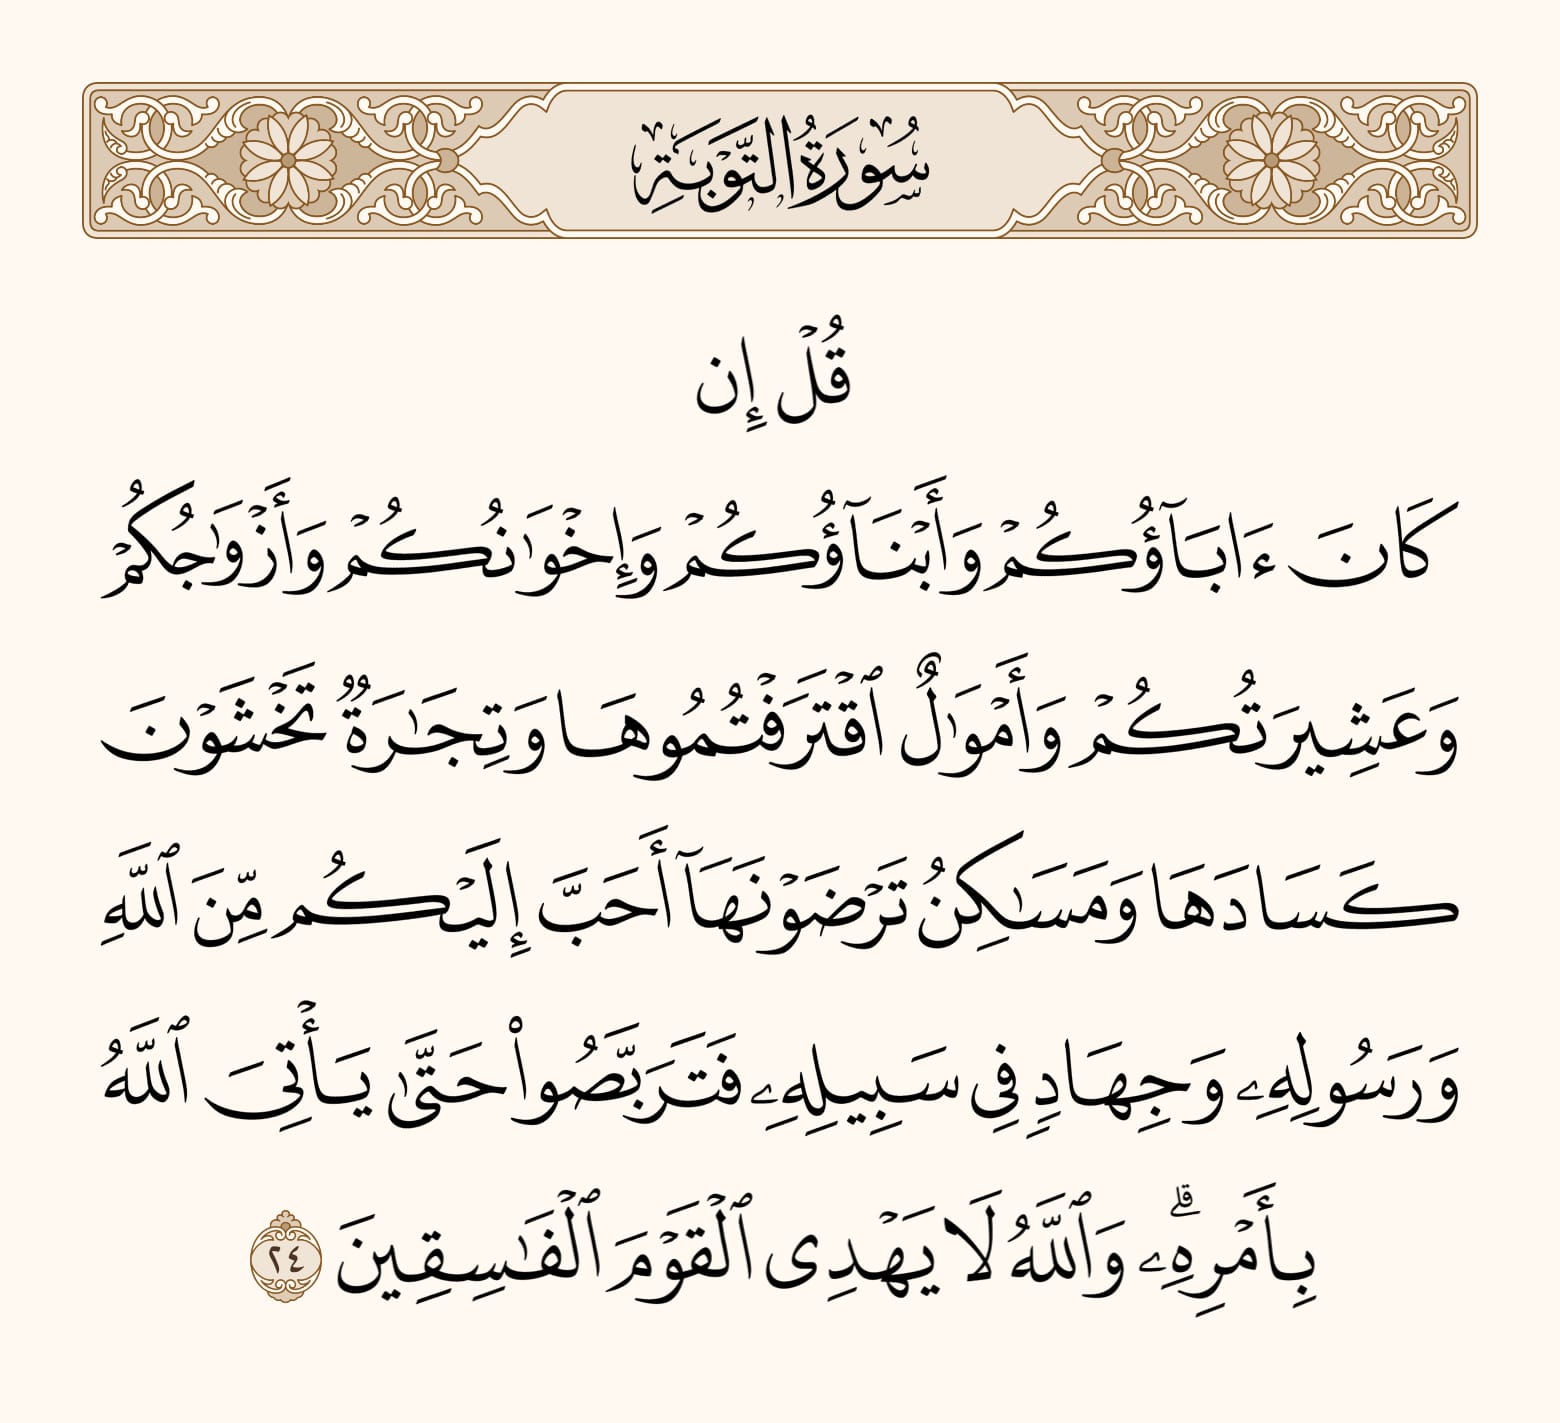 سُورَةُ التَّوۡبَةِ
قُلۡ إِن
كَانَ ءَابَآؤُكُمۡ وَأَبۡنَآؤُكُمۡ وَإِخۡوَٰنُكُمۡ وَأَزۡوَٰجُكُمۡ
وَعَشِيرَتُكُمۡ وَأَمۡوَٰلٌ ٱقۡتَرَفۡتُمُوهَا وَتِجَٰرَةٞ تَخۡشَوۡنَ
كَسَادَهَا وَمَسَٰكِنُ تَرۡضَوۡنَهَآ أَحَبَّ إِلَيۡكُم مِّنَ ٱللَّهِ
وَرَسُولِهِۦ وَجِهَادٖ فِي سَبِيلِهِۦ فَتَرَبَّصُواْ حَتَّىٰ يَأۡتِيَ ٱللَّهُ
بِأَمۡرِهِۦۗ وَٱللَّهُ لَا يَهۡدِي ٱلۡقَوۡمَ ٱلۡفَٰسِقِينَ ٢٤